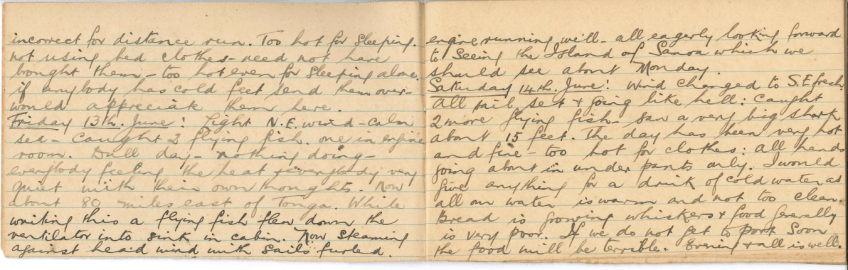 incorrect for distance run. Too hot for sleeping.
not using bed clothes - need not have
bought them - too hot even for sleeping alone.
if anybody has cold feet send them over -
would appreciate them here.
Friday 13th. June: Light N.E. wind - calm
sea - caught 2 flying fish. one in engine
room. Dull day - nothing doing -
everybody feeling the heat & everybody very
quiet with their own thoughts. Now
about 80 miles east of Tonga. While
writing this a flying fish flew down the
ventilator into sink in cabin. Now steaming
against head wind with sails furled.
engine running well - all eagerly looking forward
to seeing the Island of Samoa which we
should see about Monday.
Saturday 14th. June: Wind changed to S.E. fresh
all sail set & going like hell: Caught
2 more flying fish - saw a very big shark
about 15 feet. The day has been very hot
and fine - too hot for clothes: all hands
going about in under pants only. I would
give anything for a drink of cold water as
all our water is warm and not too clean.
Bread is growing whiskers & food generally
is very poor. If we do not get to port soon
the food will be terrible. Evening & all is well.